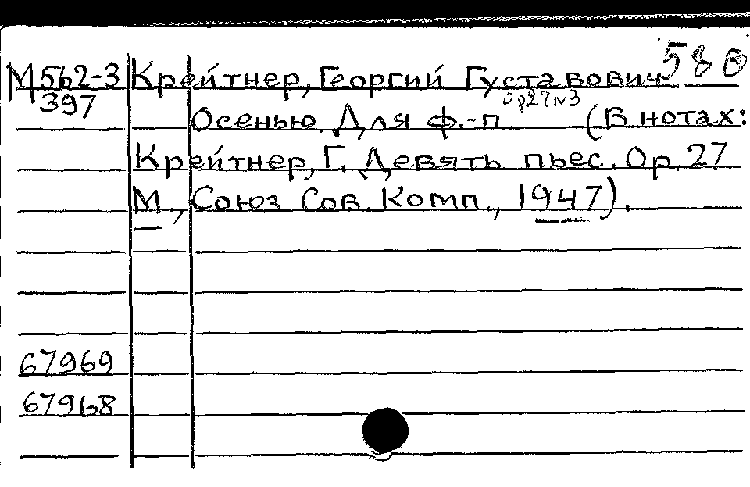 580
М562-3 Крейтнер, Георгий Густавович
397
ор27№3
Осенью. Для ф.-п (В нотах:
Крейтнер, Г. Девять пьес. Ор. 27
М., Союз Сов. Комп., 1947).
67969
67968